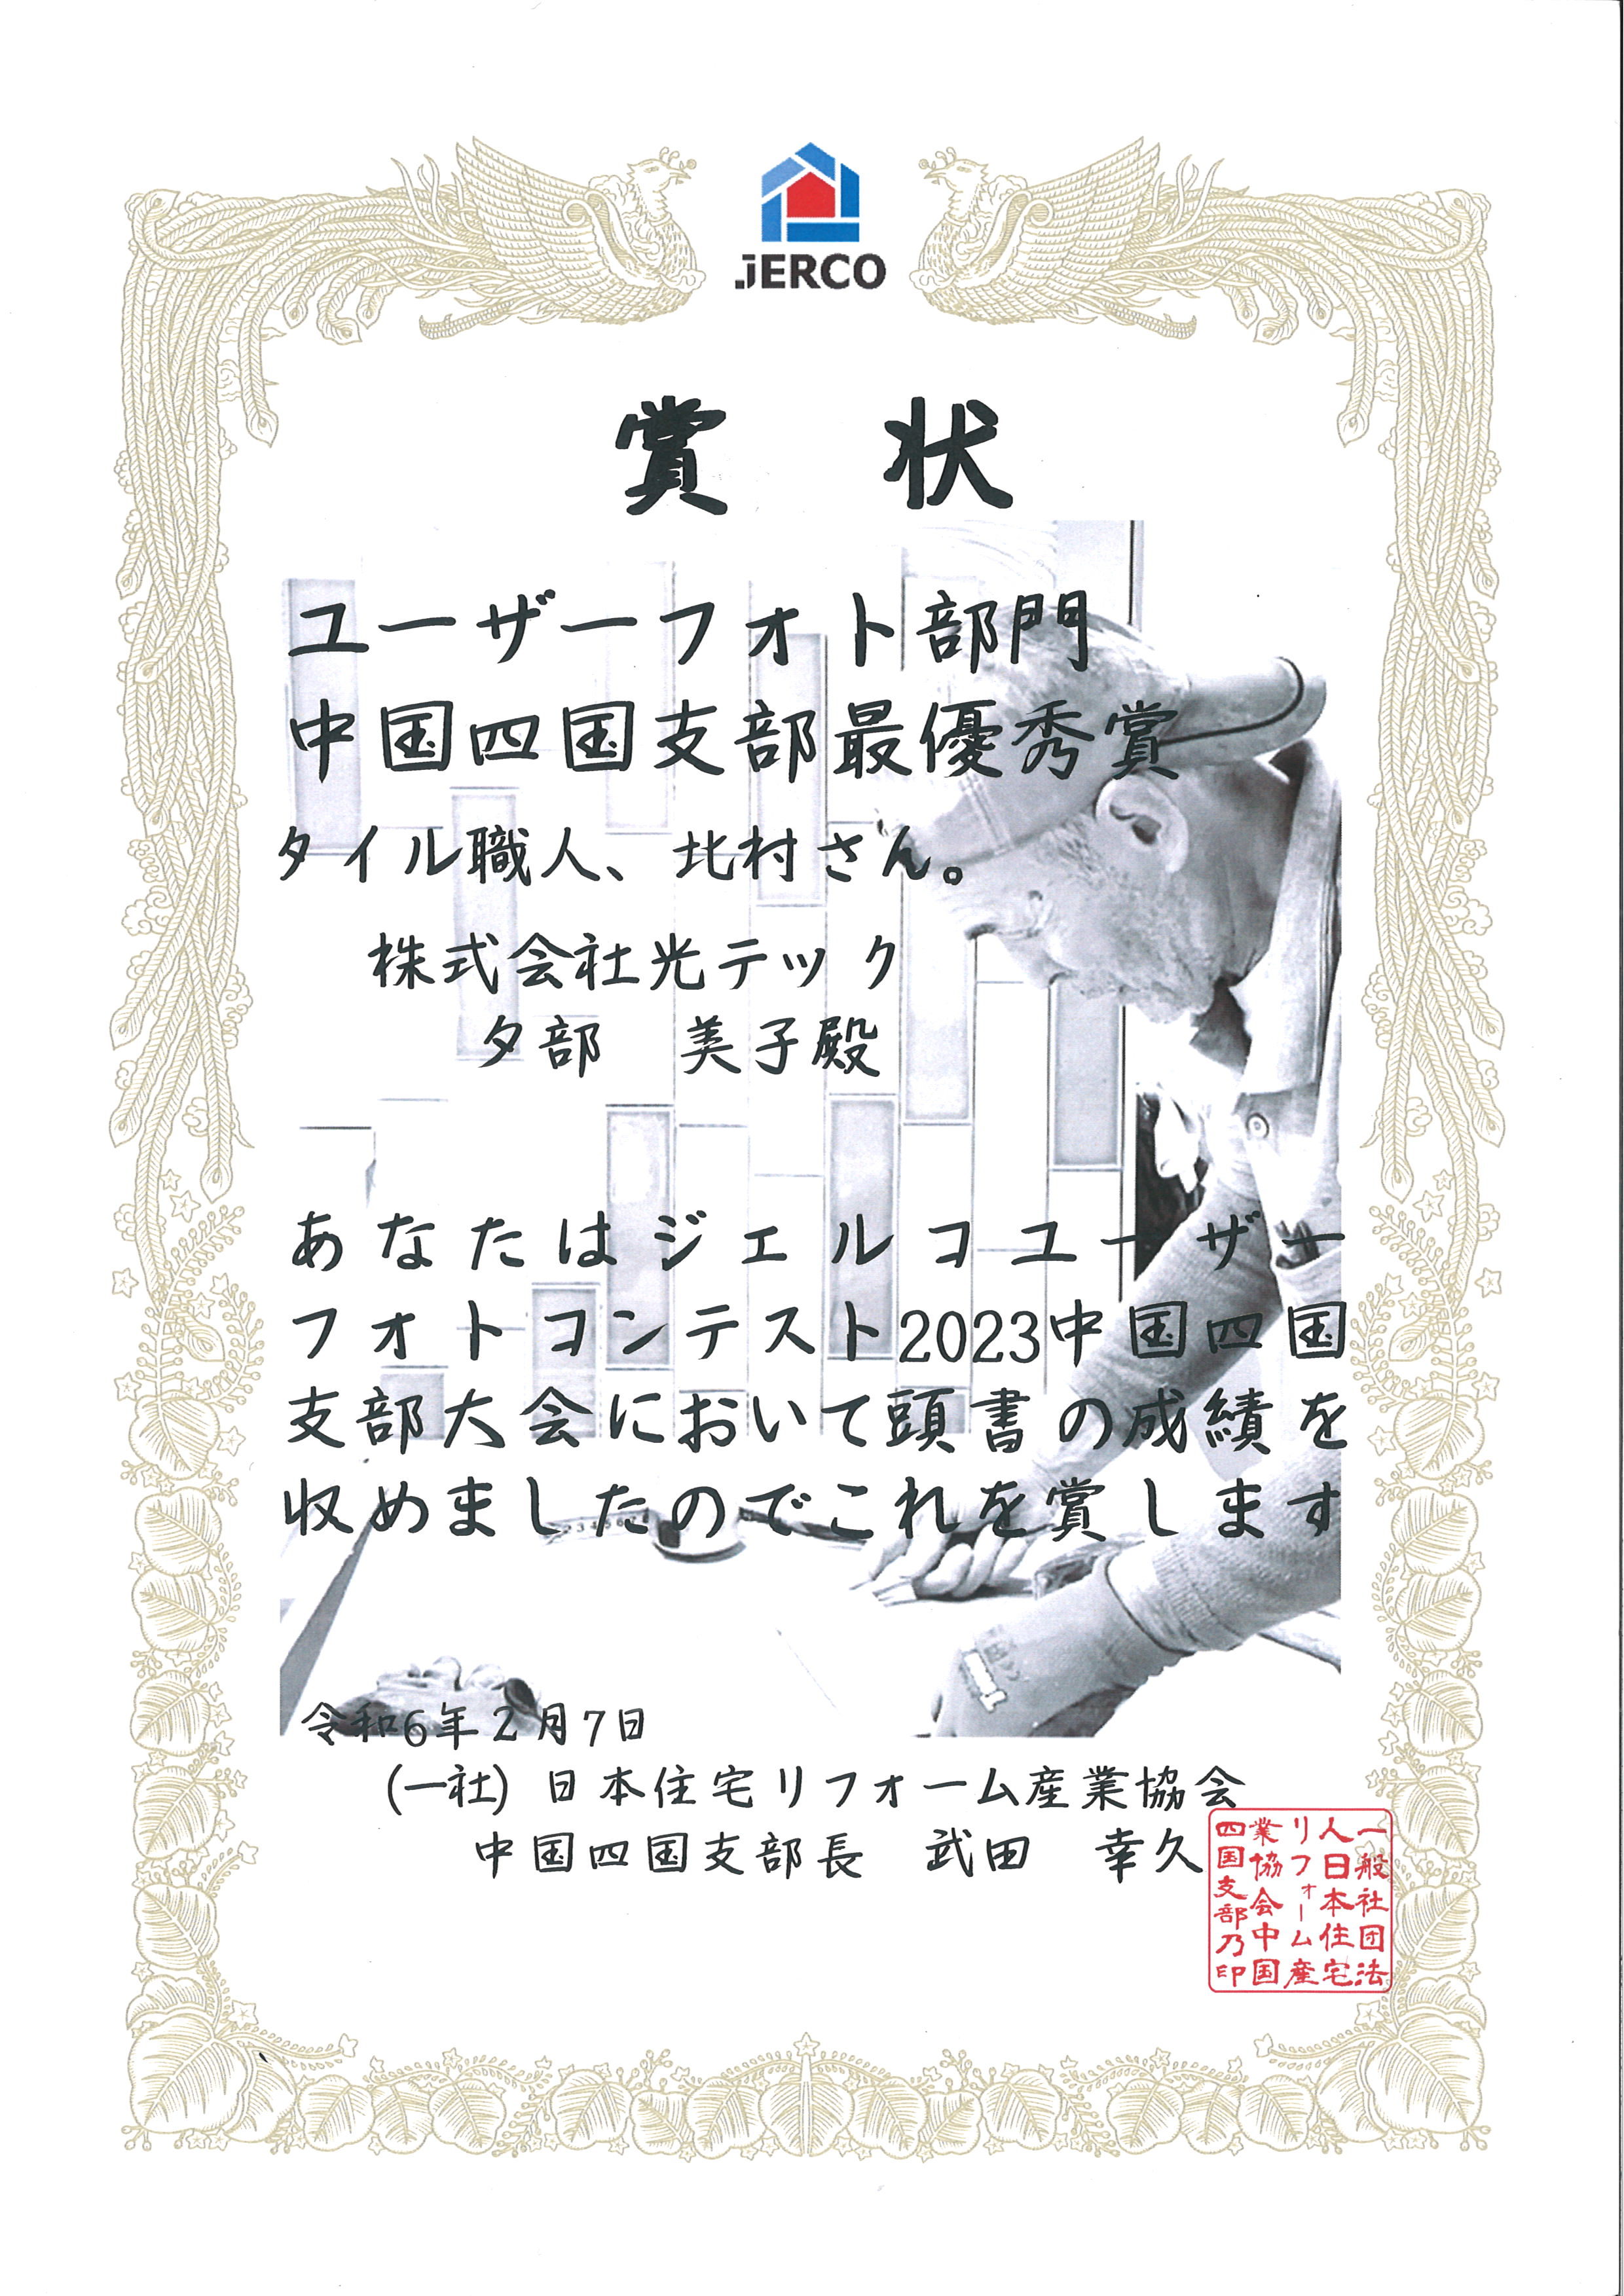 JERCO
賞 状
ユーザーフォト部門
中国四国支部最優秀賞
タイル職人、北村さん。
株式会社光テック
夕部 美子殿
あなたはジェルコユーザー
フォトコンテスト2023中国四国
支部大会において頭書の成績を
収めましたのでこれを賞します
令和6年2月7日
(一社) 日本住宅リフォーム産業協会
中国四国支部長 武田 幸久
一般社団法
人日本住宅
リフォーム産
業協会中国
四国支部乃印